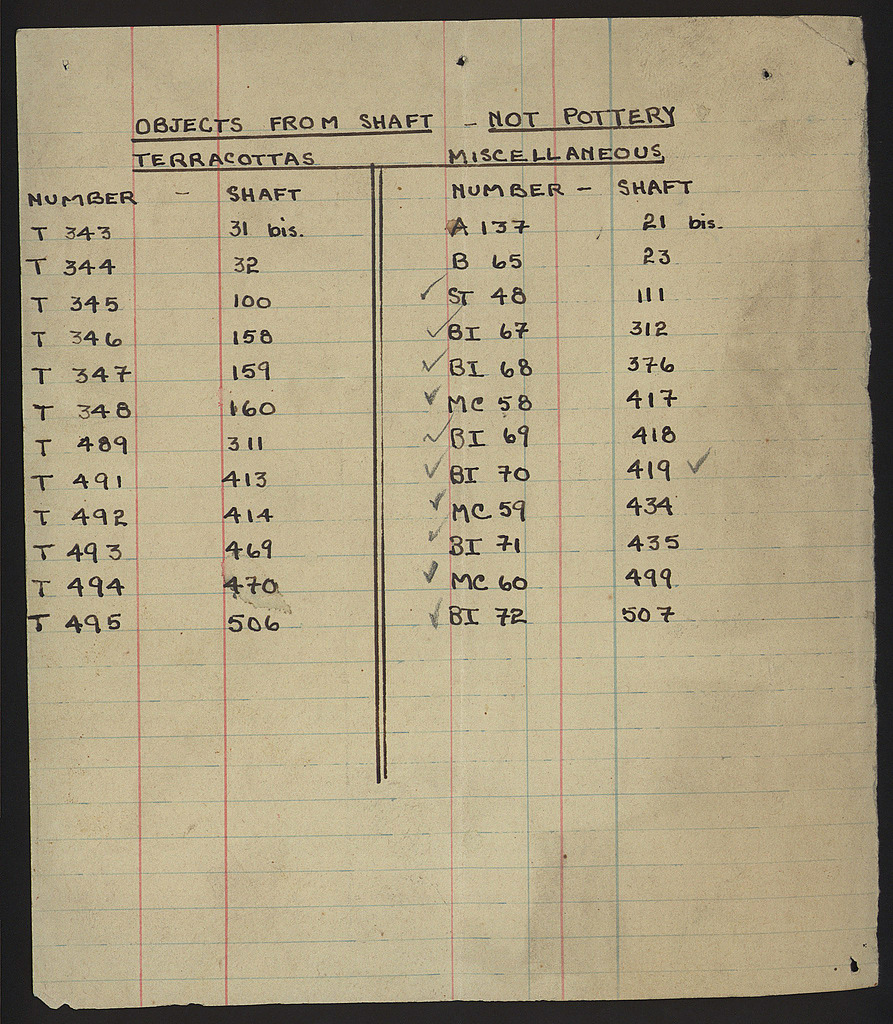 OBJECTS FROM SHAFT - NOT POTTERY
TERRACOTTAS MISCELLANEOUS
NUMBER - SHAFT NUMBER - SHAFT
T 343 31 bis. A 137 21 bis.
T 344 32 B 65 23
T 345 100 ✓ ST 48 111
T 346 158 ✓ BI 67 312
T 347 159 ✓ BI 68 376
T 348 160 ✓ MC 58 417
T 489 311 ✓ BI 69 418
T 491 413 ✓ BI 70 419 ✓
T 492 414 ✓ MC 59 434
T 493 469 ✓ BI 71 435
T 494 470 ✓ MC 60 499
T 495 506 ✓ BI 72 507